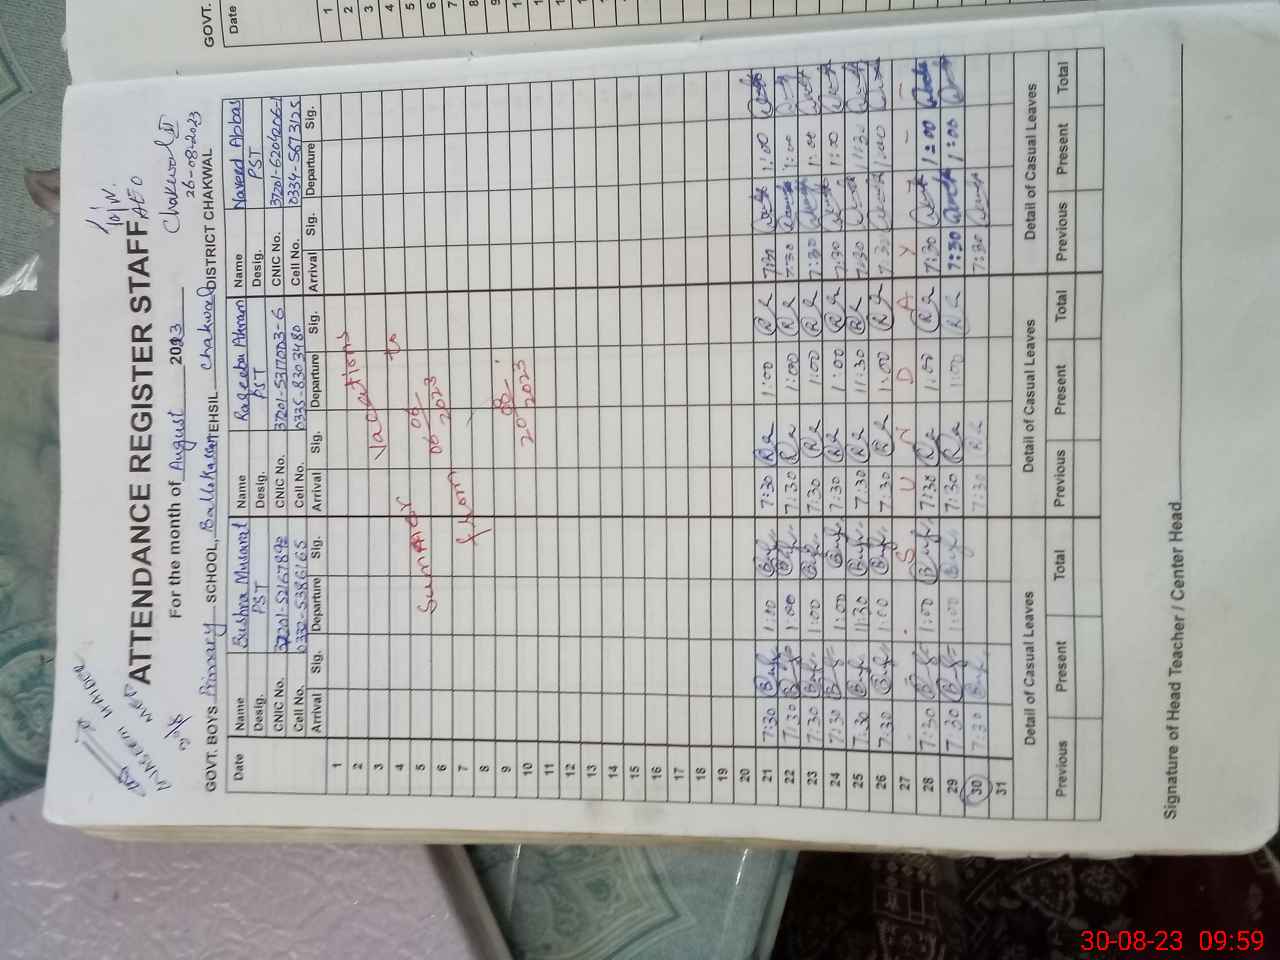 WASEEM HAIDER
MEO
AEO
Chakwal II
26-08-2023
ATTENDANCE REGISTER STAFF
For the month of August 2023
GOVT. BOYS Primary SCHOOL, Ballokassar TEHSIL Chakwal DISTRICT CHAKWAL
Date Name Bushra Musarat Name Raqeeba Akram Name Naveed Abbas
Desig. PST Desig. PST Desig. PST
CNIC No. CNIC No. 37201-5317003-6 CNIC No. 37201-6204206-1
Cell No. 0332-5386165 Cell No. 0335-8303480 Cell No. 0334-5673125
Arrival Sig. Departure Sig. Arrival Sig. Departure Sig. Arrival Sig. Departure Sig.
1
2
3 Vacations
4 to
5 Summer 06-06
6 2023
7 from
8
9 20-08-
10 2023
11
12
13
14
15
16
17
18
19
20
21 7:30 1:00 7:30 1:00 7:30 1:00
22 7:30 1:00 7:30 1:00 7:30 1:00
23 7:30 1:00 7:30 1:00 7:30 1:00
24 7:30 1:00 7:30 1:00 7:30 1:00
25 7:30 11:30 7:30 11:30 7:30 11:30
26 7:30 1:00 7:30 1:00 7:30 1:00
27 S U N D A Y
28 7:30 1:00 7:30 1:00 7:30 1:00
29 7:30 1:00 7:30 1:00 7:30 1:00
30 7:30 7:30 7:30
31
Detail of Casual Leaves Detail of Casual Leaves Detail of Casual Leaves
Previous Present Total Previous Present Total Previous Present Total
Signature of Head Teacher / Center Head
GOVT.
Date
1
2
3
4
5
6
7
8
9
10
30-08-23 09:59